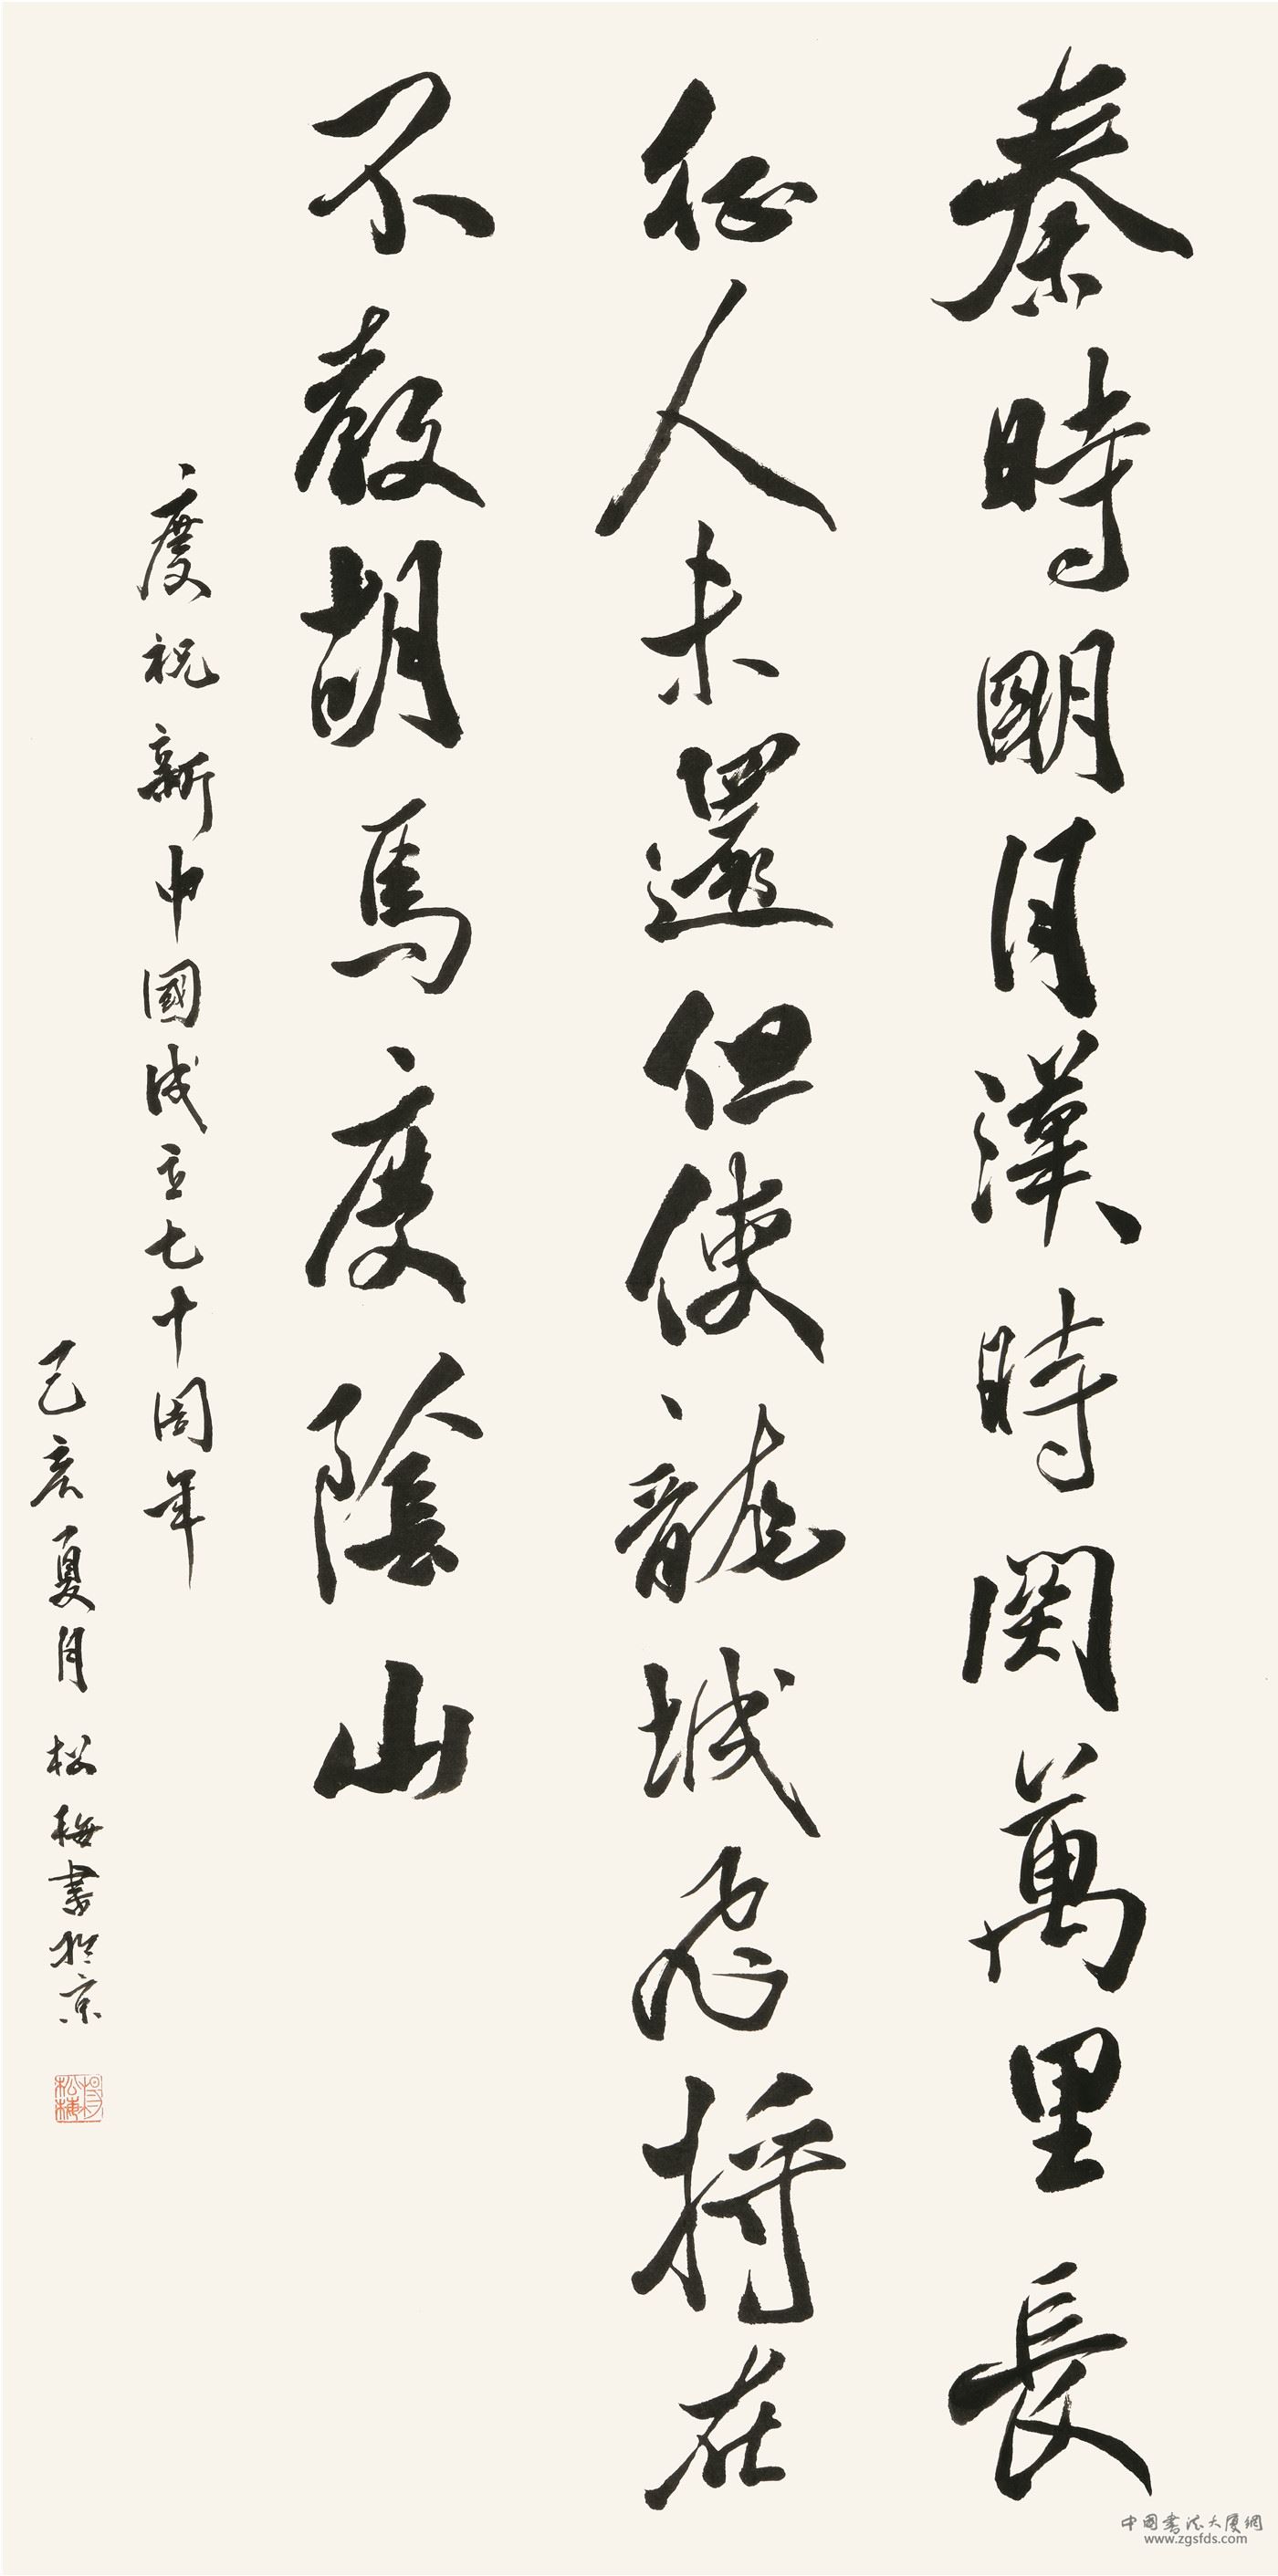 秦時明月漢時関萬里長
征人未還但使龍城飛將在
不教胡馬度陰山
慶祝新中國成立七十周年
己亥夏月 松梅書於京
楊松梅
中国書法大厦網
www.zgsfds.com